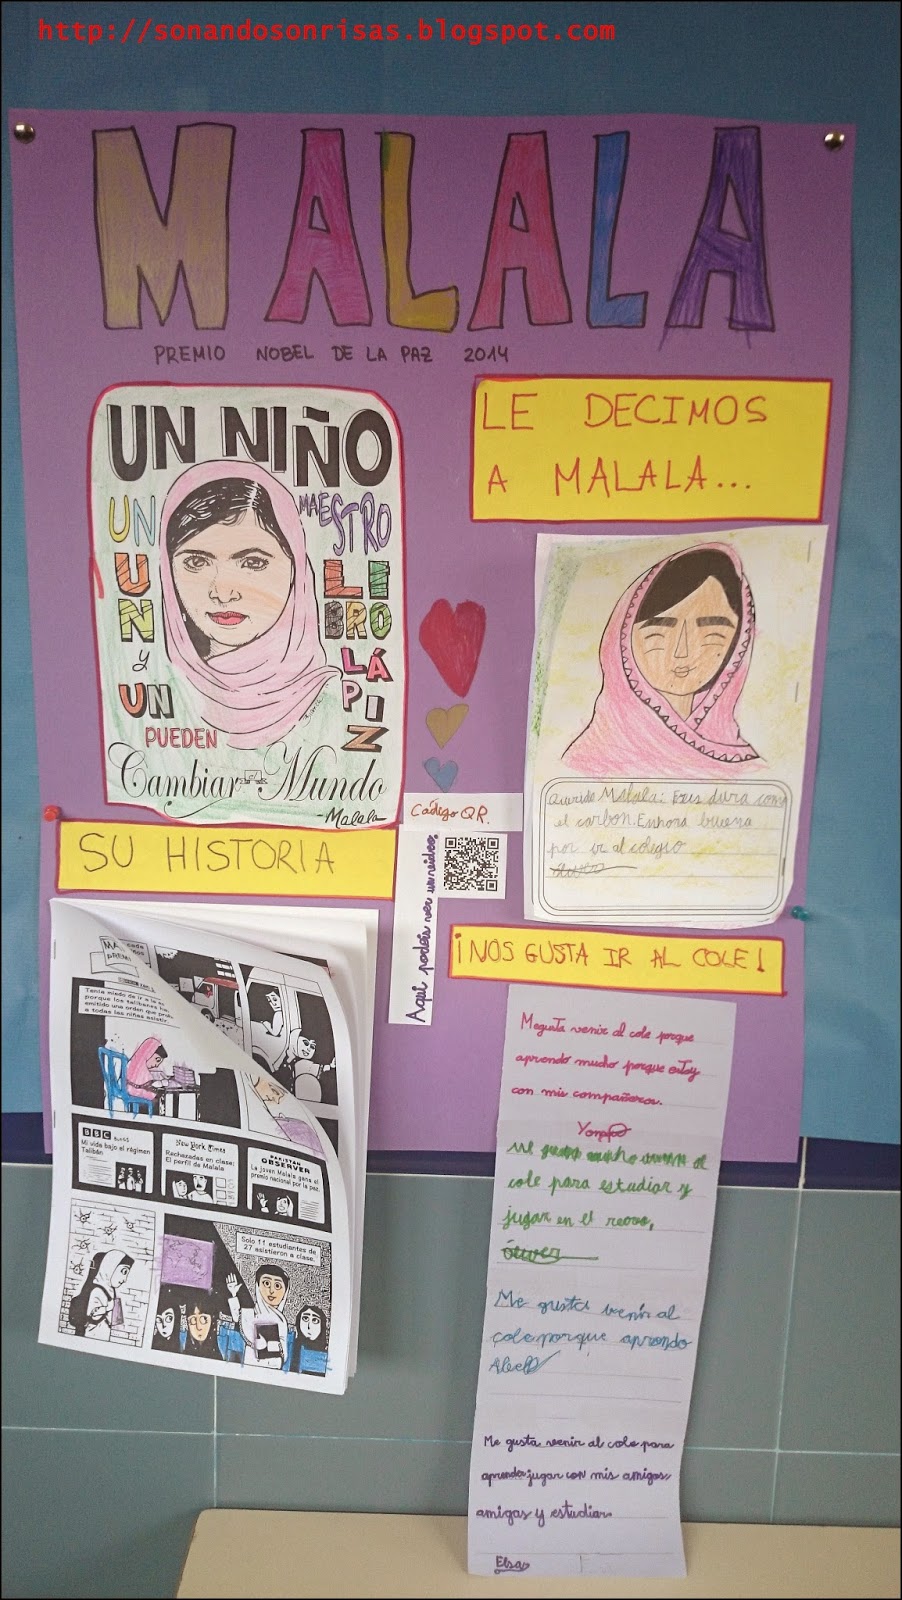 http://sonandosonrisas.blogspot.com
MALALA
PREMIO NOBEL DE LA PAZ 2014
UN NIÑO
UN MAESTRO
UN LIBRO
y UN LÁPIZ
PUEDEN
Cambiar el Mundo
-Malala
LE DECIMOS
A MALALA...
Querida Malala: Eres dura como
el carbon. Enhora buena
por ir al colegio
Código QR.
Aquí podéis ver un video.
SU HISTORIA
Tenía miedo de ir a la
porque los talibanes
emitido una orden que
a todas las niñas asistir.
BBC BLOGS
Mi vida bajo el régimen
Talibán
New York Times
Rechazadas en clase:
El perfil de Malala
PAKISTAN
OBSERVER
La joven Malala gana el
premio nacional por la paz.
Solo 11 estudiantes de
27 asistieron a clase.
¡NOS GUSTA IR AL COLE!
Me gusta venir al cole porque
aprendo mucho porque estoy
con mis compañeros.
al
cole para estudiar y
jugar en el
Me gusta venir al
cole porque aprendo
Abel
Me gusta venir al cole para
aprender jugar con mis amigos
amigas y estudiar.
Elsa